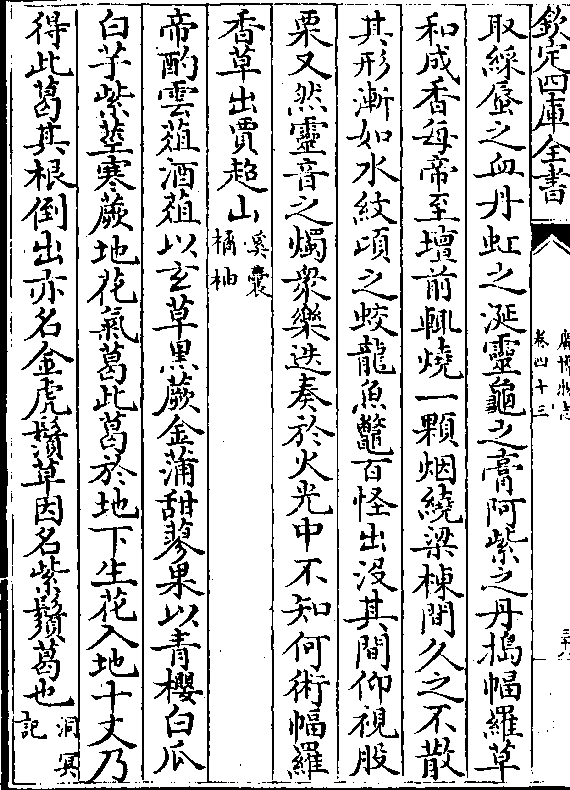 欽定四庫全書
廣博物志
卷四十三
取綵蜃之血丹虹之涎靈龜之膏阿紫之丹搗幅羅草
和成香每帝至壇前輒燒一顆烟繞梁棟間久之不散
其形漸如水紋頃之蛟龍魚鼈百怪出没其間仰視股
栗又然靈音之燭衆樂迭奏於火光中不知何術幅羅
香草出賈超山奚囊橘柚
帝酌雲葅酒葅以玄草黒蕨金蒲甜蓼果以青櫻白瓜
白芋紫莖寒蕨地花氣葛此葛於地下生花入地十丈乃
得此葛其根倒出亦名金虎鬚草因名紫鬚葛也洞冥記